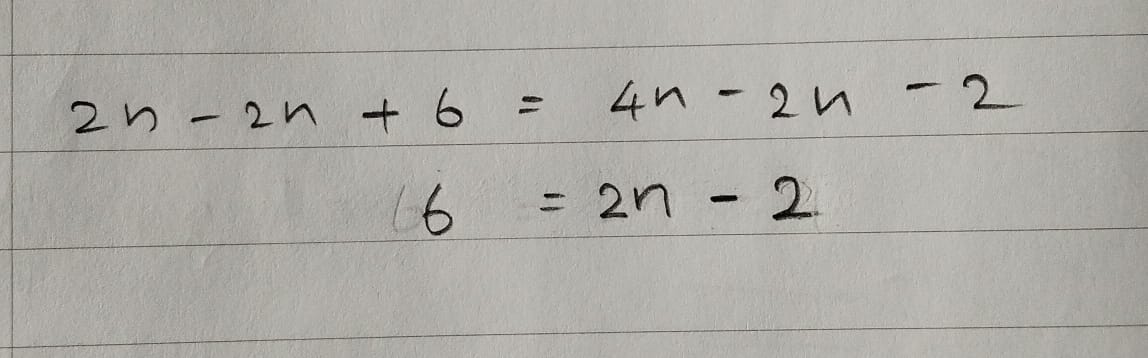 2n - 2n + 6 = 4n - 2n - 2
6 = 2n - 2